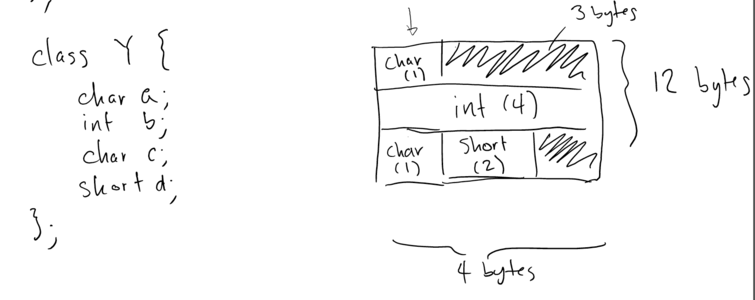 class Y {
char a;
int b;
char c;
short d;
};
3 bytes
char
(1)
int (4)
char
(1)
short
(2)
12 bytes
4 bytes